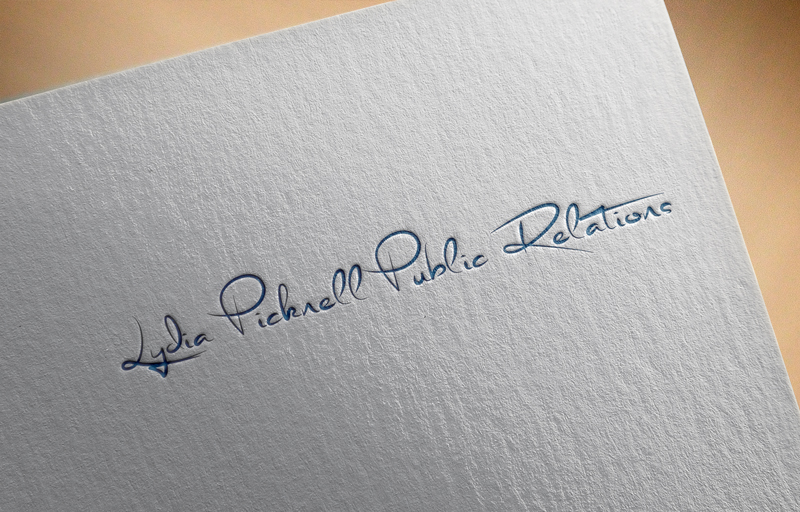 Lydia Picknell Public Relations